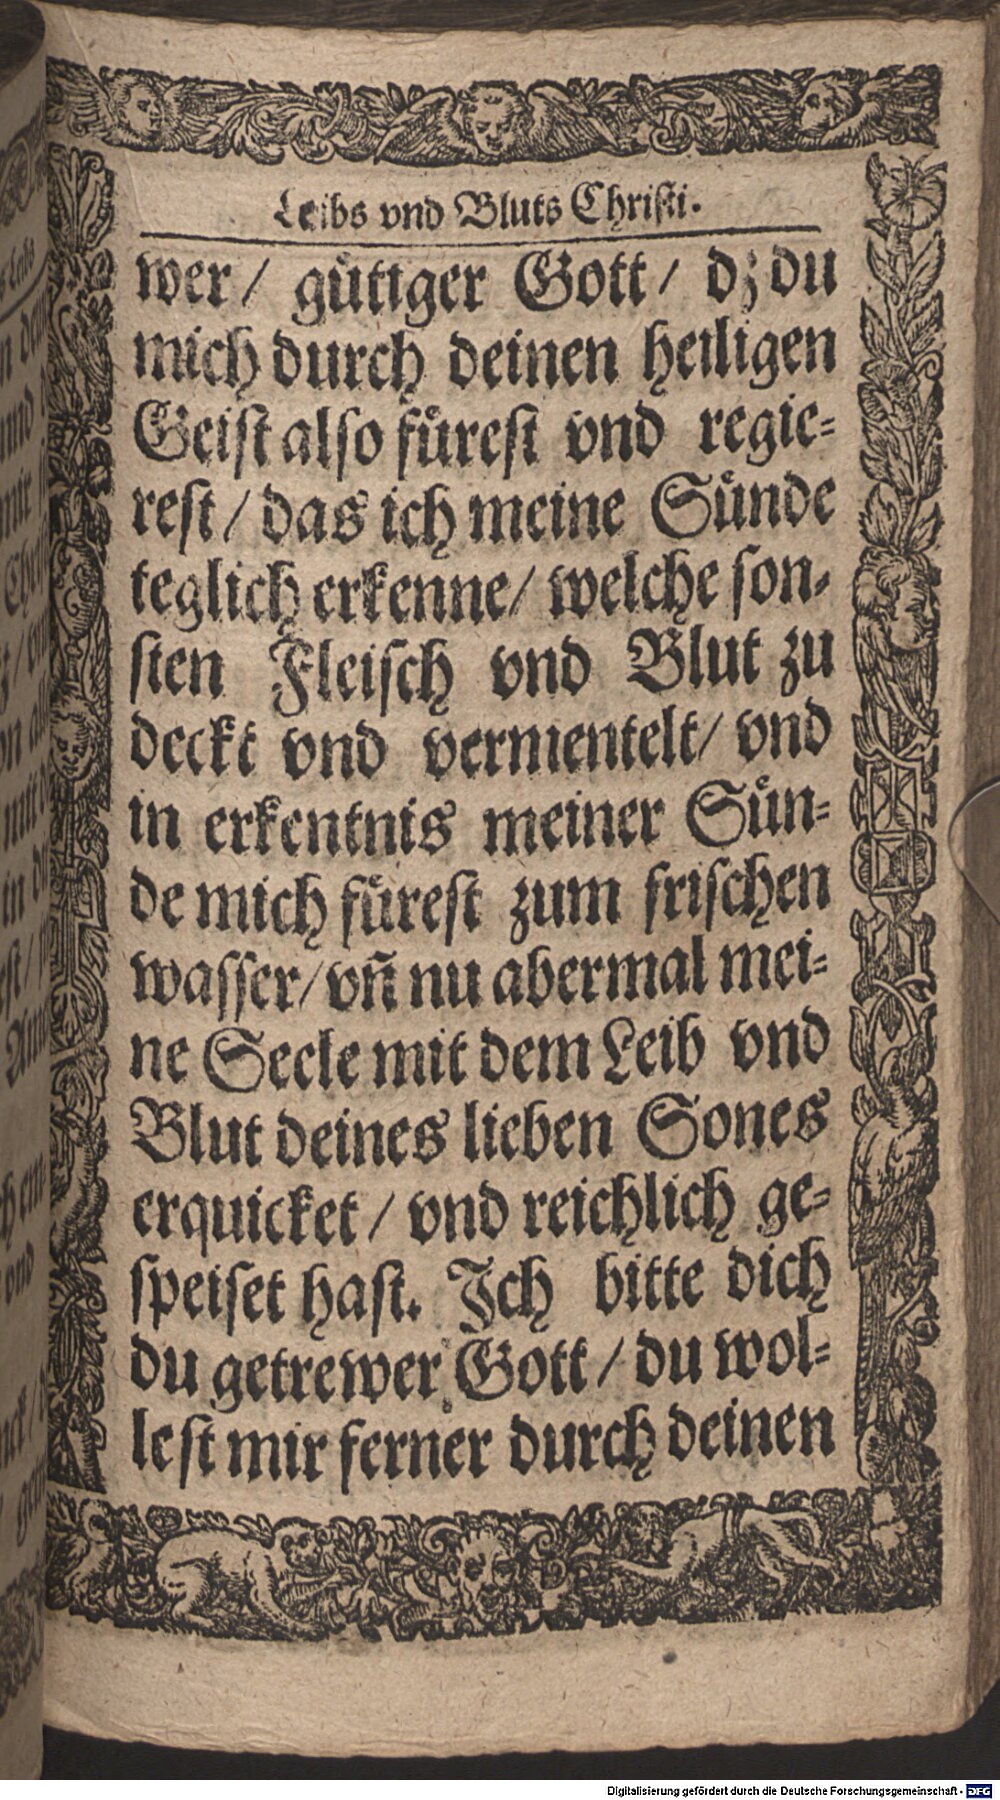 Leibs vnd Bluts Christi.
wer / gütiger Gott / dz du
mich durch deinen heiligen
Geist also fürest vnd regie=
rest / das ich meine Sünde
teglich erkenne / welche son=
sten Fleisch vnd Blut zu
deckt vnd vermentelt / vnd
in erkentnis meiner Sün=
de mich fürest zum frischen
wasser / vñ nu abermal mei=
ne Seele mit dem Leib vnd
Blut deines lieben Sones
erquicket / vnd reichlich ge=
speiset hast. Ich bitte dich
du getrewer Gott / du wol=
lest mir ferner durch deinen
Digitalisierung gefördert durch die Deutsche Forschungsgemeinschaft - DFG